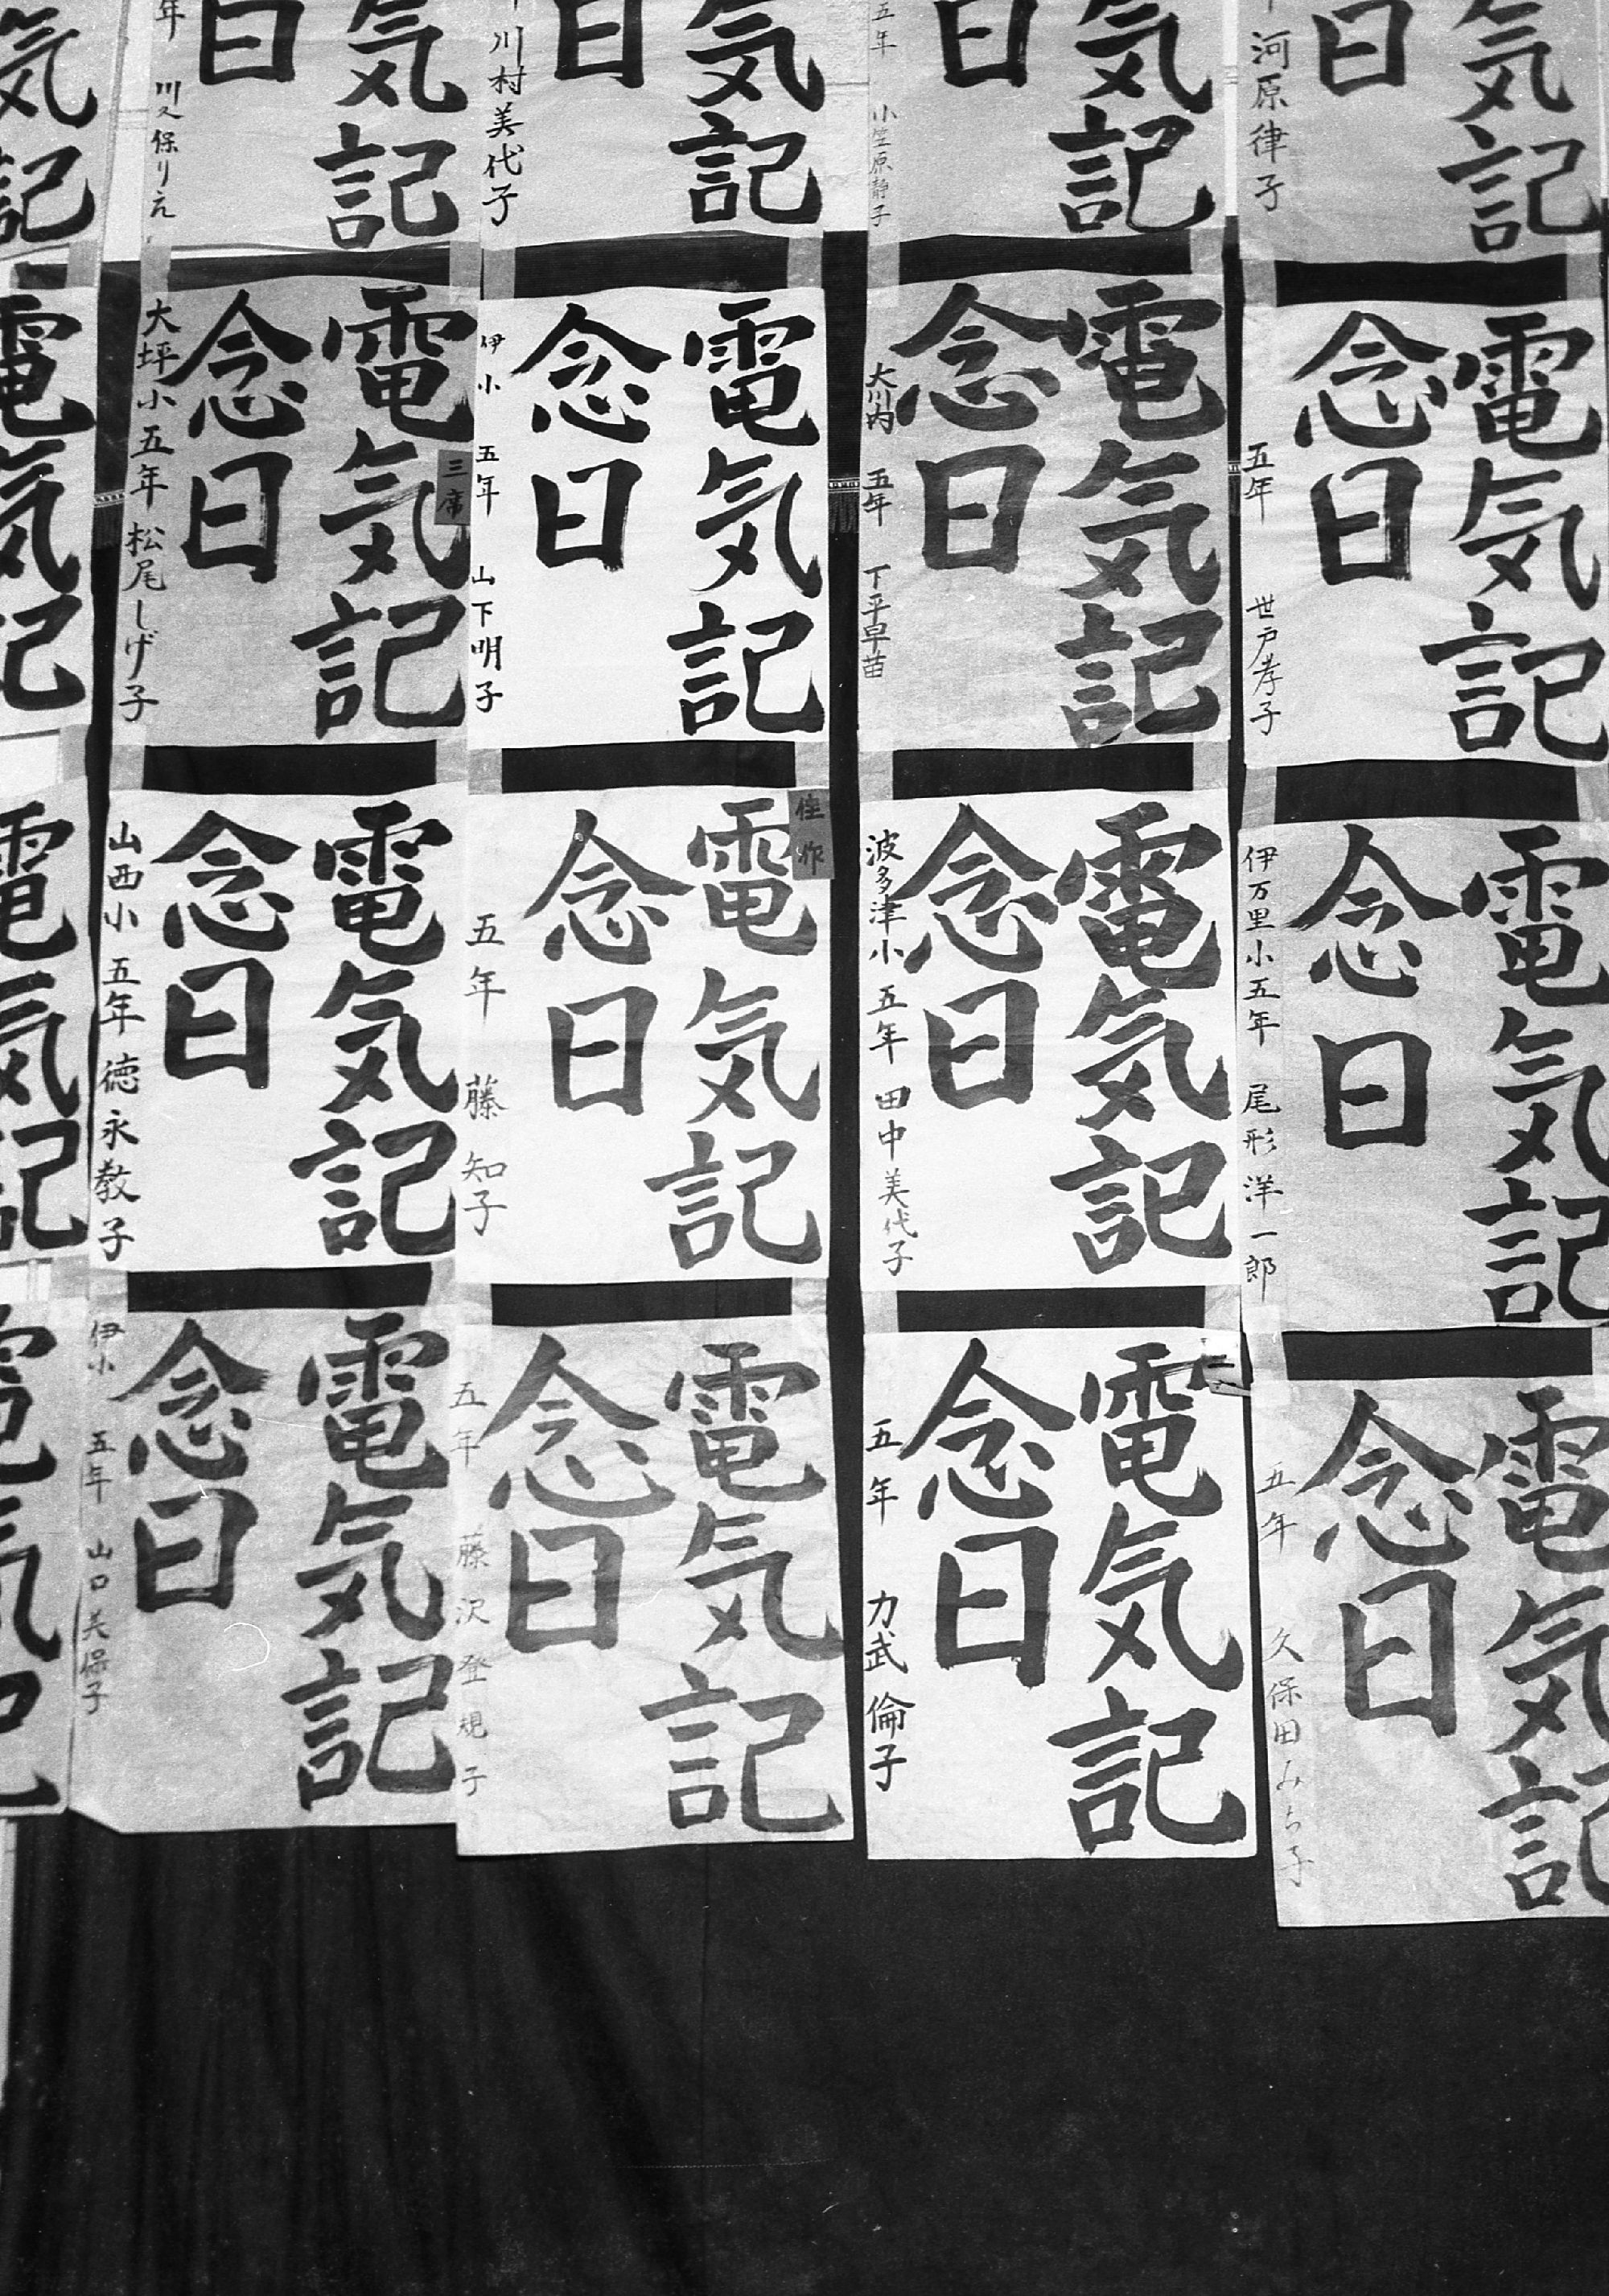 気記
日
河原律子
気記
日
五年 小笠原静子
気記
日
川村美代子
気記
日
年 川久保りえ
気記
電気記
念日
五年 世戸孝子
電気記
念日
大川内 五年 下平早苗
電気記
念日
伊小 五年 山下明子
三席
電気記
念日
大坪小五年 松尾しげ子
電気記
電気記
念日
伊万里小五年 尾形洋一郎
電気記
念日
波多津小 五年 田中美代子
佳作
電気記
念日
五年 藤 知子
電気記
念日
山西小 五年 徳永教子
電気記
電気記
念日
五年 久保田みち子
電気記
念日
五年 力武倫子
電気記
念日
五年 藤沢登規子
電気記
念日
伊小 五年 山口美保子
電気記